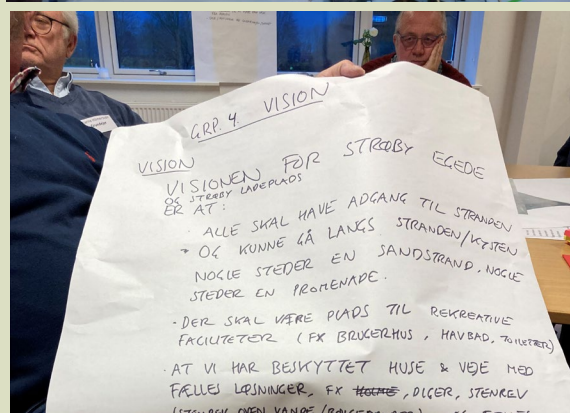 GRP. 4. VISION
VISION
VISIONEN FOR STRØBY EGEDE
OG STRØBY LADEPLADS
ER AT:
· ALLE SKAL HAVE ADGANG TIL STRANDEN
- OG KUNNE GÅ LANGS STRANDEN/KYSTEN
NOGLE STEDER EN SANDSTRAND, NOGLE
STEDER EN PROMENADE.
· DER SKAL VÆRE PLADS TIL REKREATIVE
FACILITETER (FX BRUGERHUS, HAVBAD, TOILETTER)
· AT VI HAR BESKYTTET HUSE & VEJE MED
FÆLLES LØSNINGER, FX HOLME, DIGER, STENREV